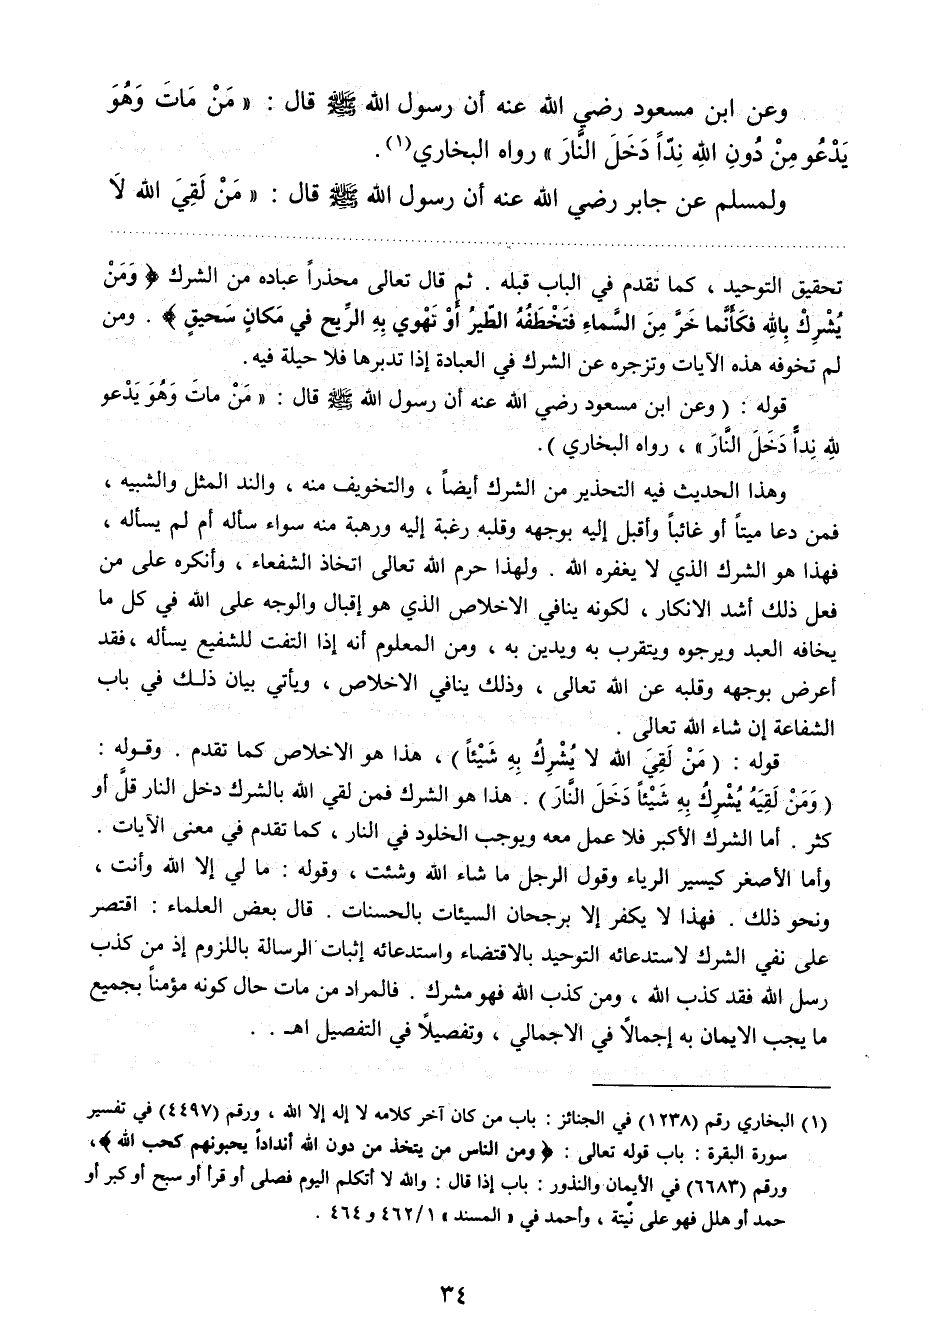 وعن ابن مسعود رضي الله عنه أن رسول الله ﷺ قال : « مَنْ مَاتَ وَهُوَ
يَدْعُو مِنْ دُونِ اللهِ نِدّاً دَخَلَ النَّارَ » رواه البخاري(١) .
ولمسلم عن جابر رضي الله عنه أن رسول الله ﷺ قال : « مَنْ لَقِيَ الله لَا
تحقيق التوحيد ، كما تقدم في الباب قبله . ثم قال تعالى محذراً عباده من الشرك ﴿ وَمَنْ
يُشْرِكْ بِاللهِ فَكَأَنَّما خَرَّ مِنَ السَّماءِ فَتَخْطَفُهُ الطَّيرُ أَوْ تَهْوي بِهِ الرِّيح في مَكانٍ سَحيقٍ ﴾ . ومن
لم تخوفه هذه الآيات وتزجره عن الشرك في العبادة إذا تدبرها فلا حيلة فيه.
قوله : ( وعن ابن مسعود رضي الله عنه أن رسول الله ﷺ قال : « مَنْ ماتَ وَهُوَ يَدْعو
للهِ نِداًّ دَخَلَ النَّارَ » ، رواه البخاري ).
وهذا الحديث فيه التحذير من الشرك أيضاً ، والتخويف منه ، والند المثل والشبيه ،
فمن دعا ميتاً أو غائباً وأقبل إليه بوجهه وقلبه رغبة إليه ورهبة منه سواء سأله أم لم يسأله ،
فهذا هو الشرك الذي لا يغفره الله . ولهذا حرم الله تعالى اتخاذ الشفعاء ، وأنكره على من
فعل ذلك أشد الانكار ، لكونه ينافي الاخلاص الذي هو إقبال والوجه على الله في كل ما
يخافه العبد ويرجوه ويتقرب به ويدين به ، ومن المعلوم أنه إذا التفت للشفيع يسأله ، فقد
أعرض بوجهه وقلبه عن الله تعالى ، وذلك ينافي الاخلاص ، ويأتي بيان ذلك في باب
الشفاعة إن شاء الله تعالى .
قوله : ( مَنْ لَقِيَ الله لا يُشْرِكُ بِهِ شَيْئاً ) ، هذا هو الاخلاص كما تقدم . وقوله :
( وَمَنْ لَقِيَهُ يُشْرِكُ بِهِ شَيْئاً دَخَلَ النَّارَ ) . هذا هو الشرك فمن لقي الله بالشرك دخل النار قلَّ أو
كثر . أما الشرك الأكبر فلا عمل معه ويوجب الخلود في النار ، كما تقدم في معنى الآيات .
وأما الأصغر كيسير الرياء وقول الرجل ما شاء الله وشئت ، وقوله : ما لي إلا الله وأنت ،
ونحو ذلك . فهذا لا يكفر إلا برجحان السيئات بالحسنات . قال بعض العلماء : اقتصر
على نفي الشرك لاستدعائه التوحيد بالاقتضاء واستدعائه إثبات الرسالة باللزوم إذ من كذب
رسل الله فقد كذب الله ، ومن كذب الله فهو مشرك . فالمراد من مات حال كونه مؤمناً بجميع
ما يجب الايمان به إجمالًا في الاجمالي ، وتفصيلًا في التفصيل اهـ . .
(١) البخاري رقم (١٢٣٨) في الجنائز : باب من كان آخر كلامه لا إله إلا الله ، ورقم (٤٤٩٧) في تفسير
سورة البقرة : باب قوله تعالى : ﴿ ومن الناس من يتخذ من دون الله أنداداً يحبونهم كحب الله ﴾،
ورقم (٦٦٨٣) في الأيمان والنذور : باب إذا قال : والله لا أتكلم اليوم فصلى أو قرأ أو سبح أو كبر أو
حمد أو هلل فهو على نيّتة ، وأحمد في « المسند » ٤٦٢/١ و ٤٦٤ .
٣٤